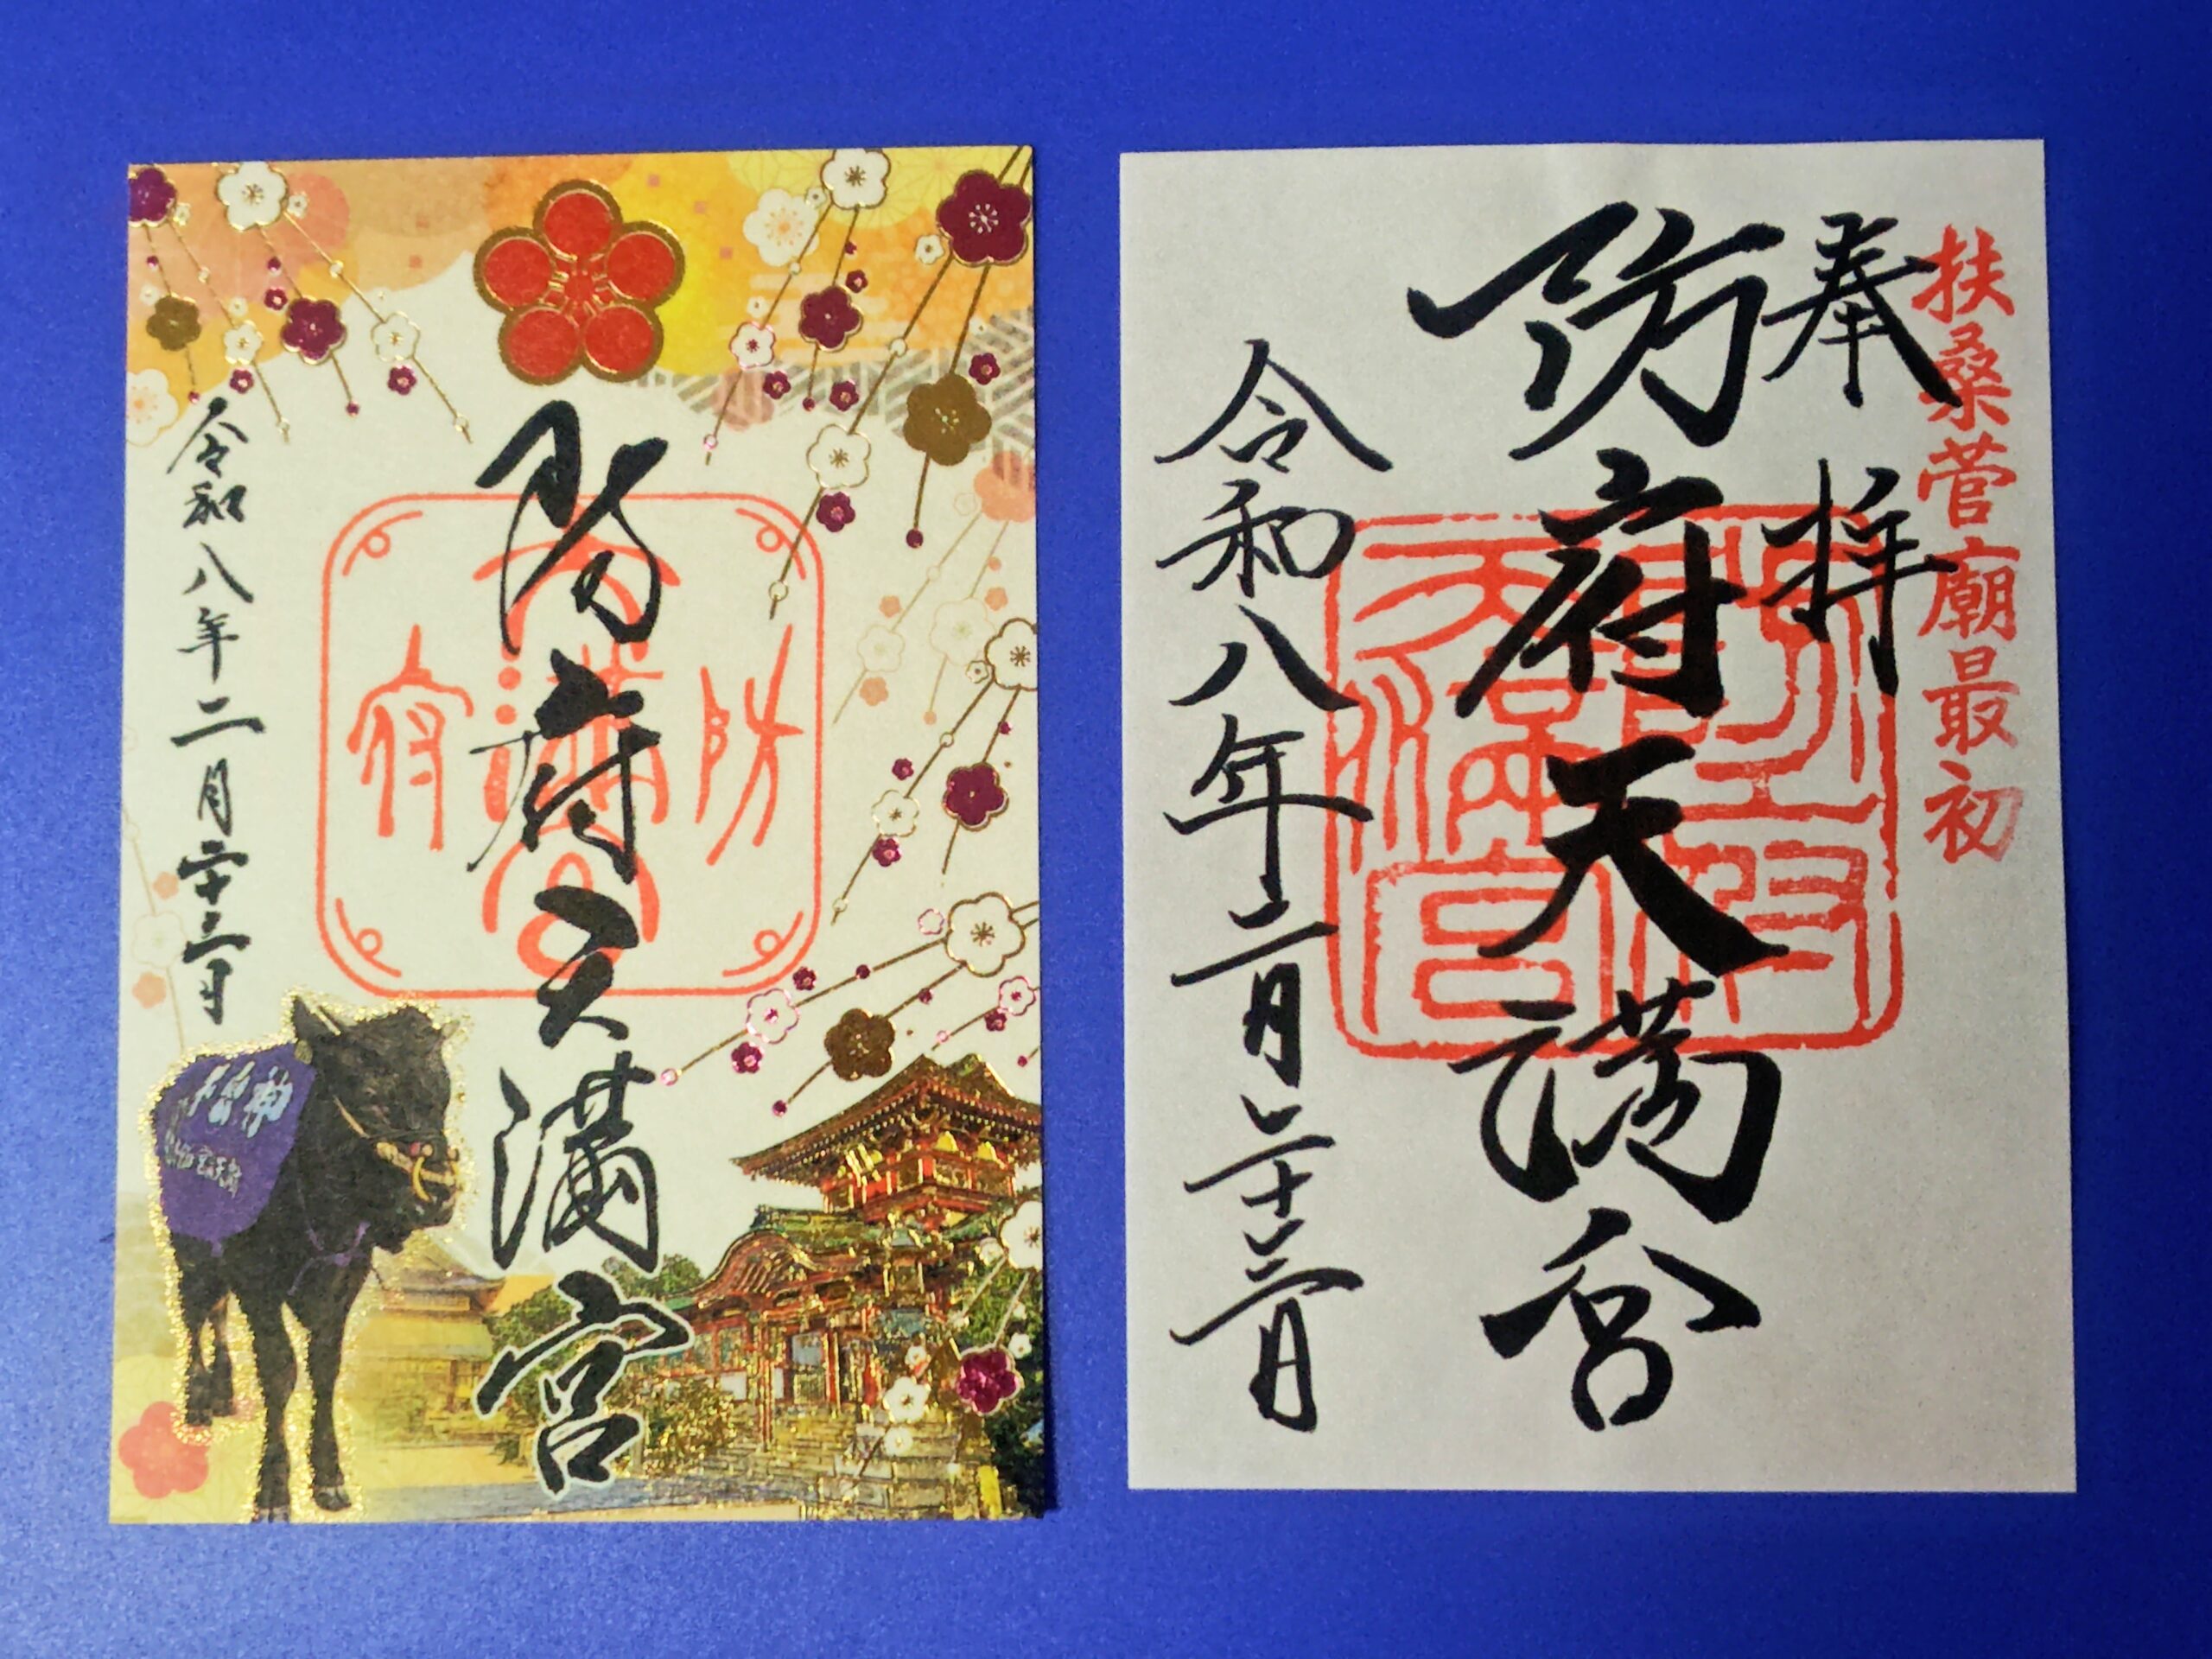 防府天満宮
令和八年二月二十二日
防府
天満宮
神牛
扶桑菅廟最初
奉拝
防府天満宮
令和八年二月二十二日
防府
天満宮